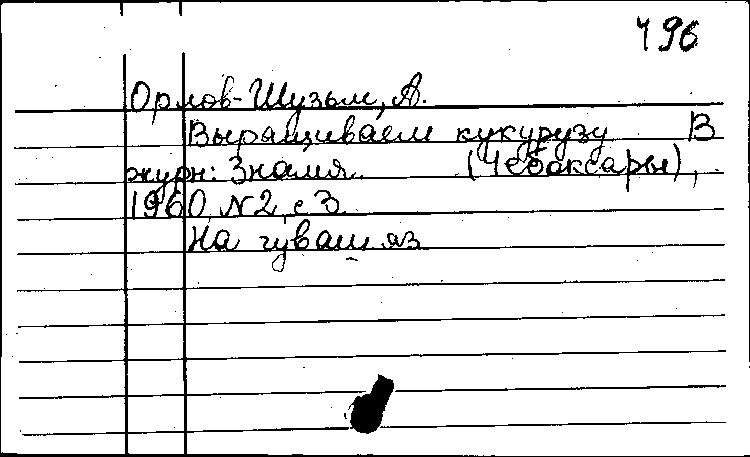 496
Орлов-Шузьм, А.
Выращиваем кукурузу В
журн: Знамя (Чебоксары),
1960, N2, с 3.
На чуваш яз